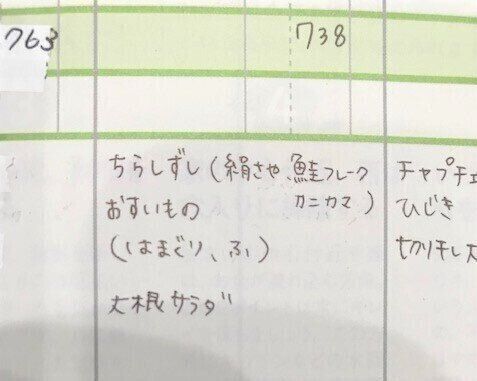 763 738
ちらしずし(絹さや 鮭フレーク
カニカマ)
おすいもの
(はまぐり、ふ)
大根サラダ
チャプチェ
ひじき
切り干し大